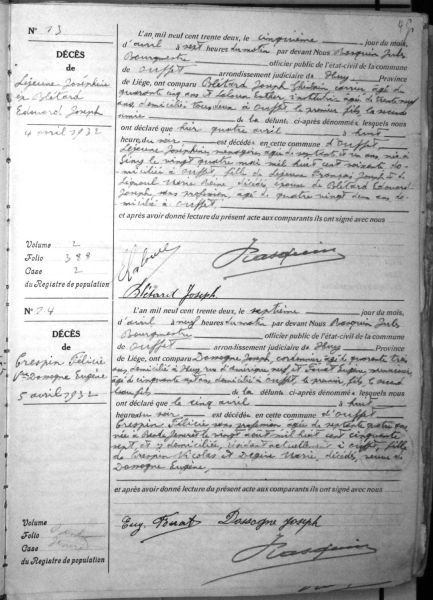 N° 13
DÉCÈS
de
Lejeune Joséphine
ép Blétard
Edouard Joseph
4 avril 1932
L'an mil neuf cent trente deux, le cinquième jour du mois,
d'avril à sept heures du matin par devant Nous Rasquin Jules
Bourgmestre officier public de l'état-civil de la commune
de Ouffet arrondissement judiciaire de Huy Province
de Liège, ont comparu Blétard Joseph Ghislain carrier âgé de
quarante cinq ans et instituteur âgé de trente neuf
ans, domiciliés tous deux à Ouffet le premier fils, le second
de la défunt ci-après dénommée, lesquels nous
ont déclaré que hier quatre avril à huit
heures du soir est décédée en cette commune d'Ouffet
Lejeune Joséphine ménagère âgée de septante ans née à
le vingt quatre mai mil huit cent soixante do-
miciliée à Ouffet, fille de Lejeune François Joseph et de
Marie décédés épouse de Blétard Edouard
Joseph, sans profession, âgé de quatre vingt deux ans do-
micilié à Ouffet.
et après avoir donné lecture du présent acte aux comparants ils ont signé avec nous
Rasquin
Blétard Joseph
Volume 2
Folio 388
Case 2
du Registre de population
N° 14
DÉCÈS
de
Crespin Félicie
Vve Dossogne Eugène
5 avril 1932
L'an mil neuf cent trente deux, le septième jour du mois,
d'avril à neuf heures du matin par devant Nous Rasquin Jules
Bourgmestre officier public de l'état-civil de la commune
de Ouffet arrondissement judiciaire de Huy Province
de Liège, ont comparu Dossogne Joseph, cordonnier âgé de quarante trois
ans, domicilié à Huy rue d'Amérique neuf et Eugène
âgé de cinquante ans domicilié à Ouffet le premier, fils, le second
beau fils de la défunt ci-après dénommée, lesquels nous
ont déclaré que le cinq avril à huit
heures du soir est décédée en cette commune d'Ouffet
Crespin Félicie sans profession âgée de septante quatre ans
née à le vingt août mil huit cent cinquante
sept et y domiciliée, résidant actuellement à Ouffet, fille
de Crespin Nicolas et Marie, décédés, veuve de
Dossogne Eugène,
et après avoir donné lecture du présent acte aux comparants ils ont signé avec nous
Eug. Dossogne Joseph
Rasquin
Volume
Folio
Case
du Registre de population